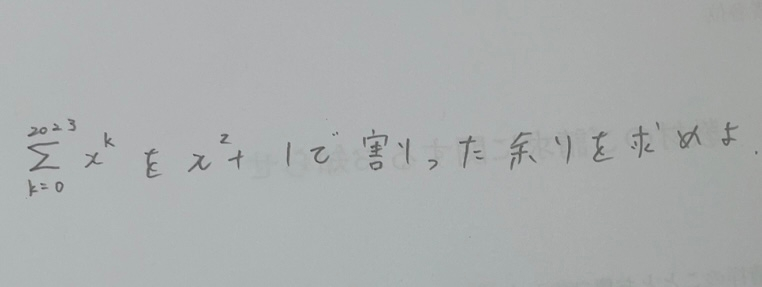 $\sum_{k=0}^{2023} x^k$ を $x^2+1$ で割った余りを求めよ.